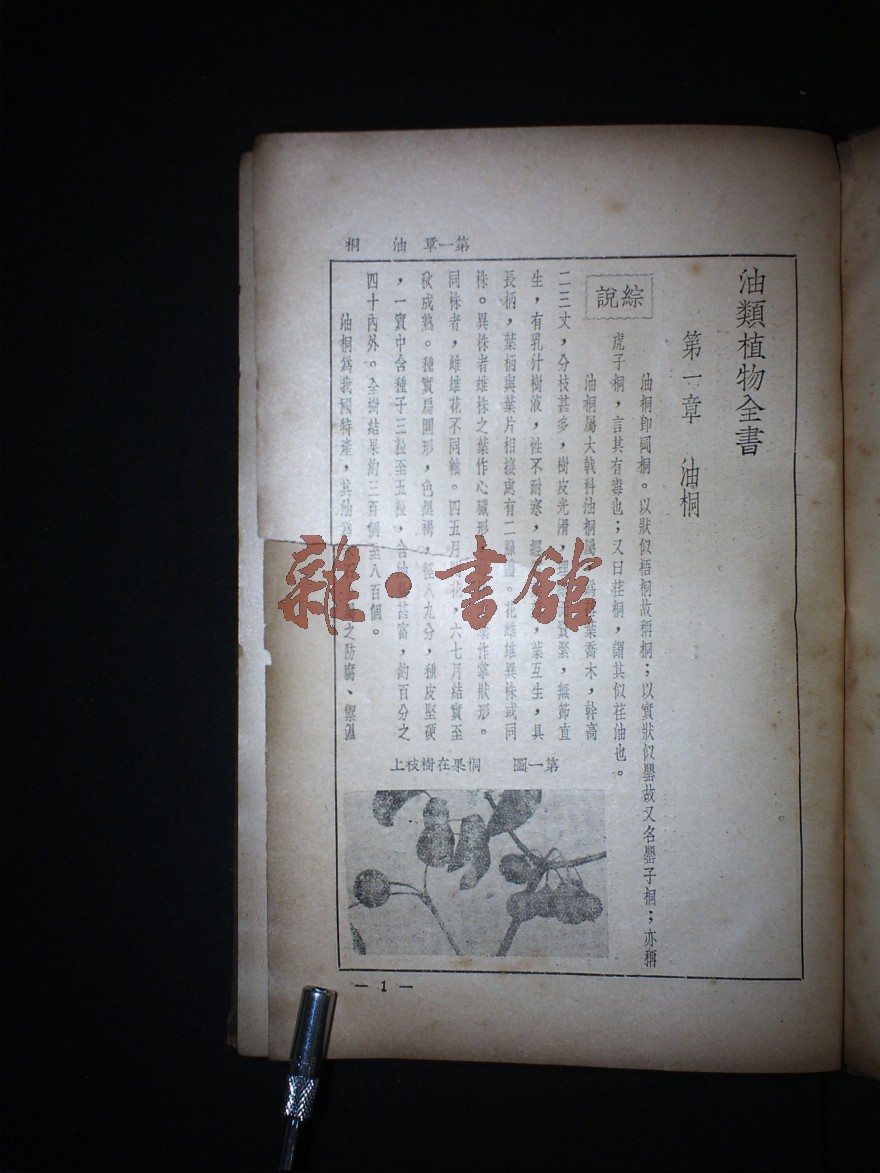 第一章 油 桐
油類植物全書
第一章 油桐
綜說
油桐即岡桐。以狀似梧桐故稱桐；以實狀似罌故又名罌子桐；亦稱
虎子桐，言其有毒也；又曰荏桐，謂其似荏油也。
油桐屬大戟科油桐屬 爲落葉喬木，幹高
二三丈，分枝甚多，樹皮光滑， 質堅，無節直
生，有乳汁樹液，性不耐寒， 葉互生，具
長柄，葉柄與葉片相接處有二腺體。花雌雄異株或同
株。異株者雄株之葉作心臟形 葉作掌狀形。
同株者，雌雄花不同軸。四五月開花，六七月結實至
秋成熟。種實扁圓形，色黑褐，徑八九分，種皮堅硬
，一實中含種子三粒至五粒，含油 甚富，約百分之
四十內外。全樹結果約三百個至八百個。
油桐爲我國特產，其油爲 之防腐、禦濕
第一圖 桐果在樹枝上
— 1 —
雜·書館